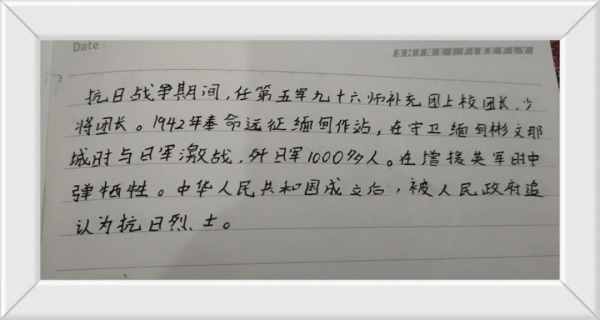 Date
SHINEIFIREFLY
抗日战争期间,任第五军九十六师补充团上校团长、少
将团长。1942年奉命远征缅甸作站,在守卫缅甸彬文那
城时与日军激战,歼日军1000多人。在增援英军时中
弹牺牲。中华人民共和国成立后,被人民政府追
认为抗日烈士。